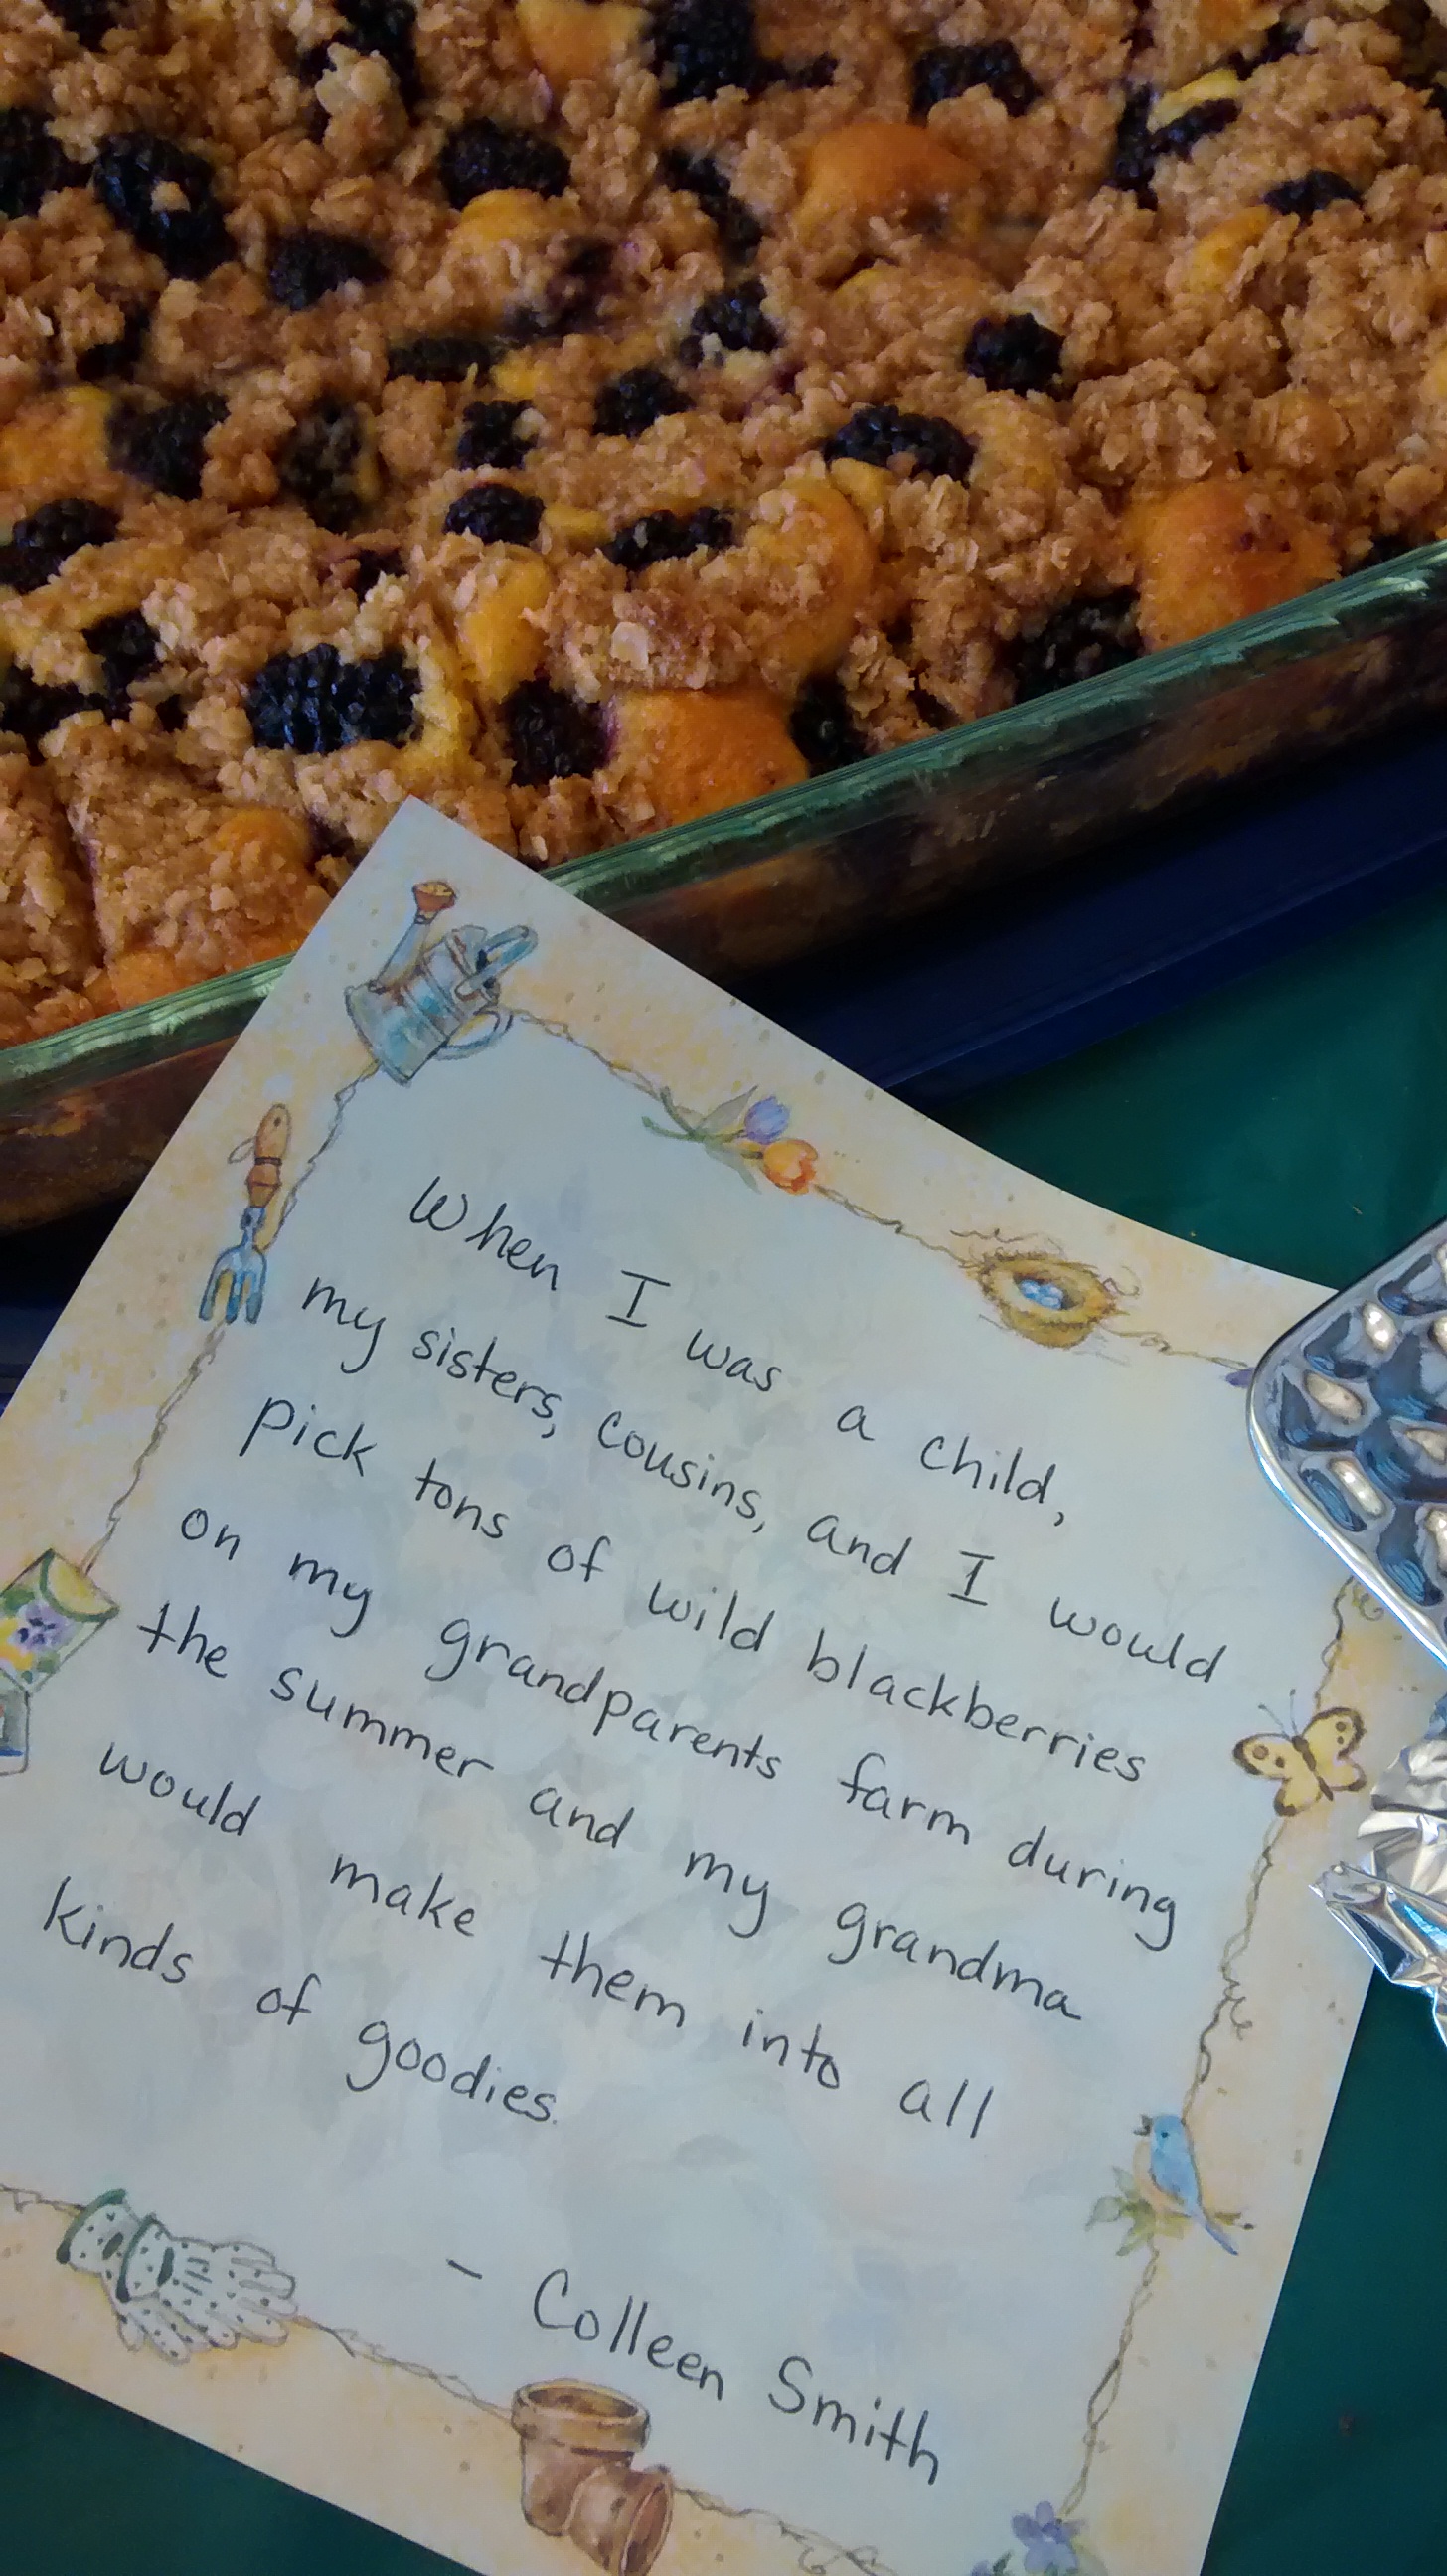 When I was a child,
my sisters, cousins, and I would
pick tons of wild blackberries
on my grandparents farm during
the summer and my grandma
would make them into all
kinds of goodies.
- Colleen Smith